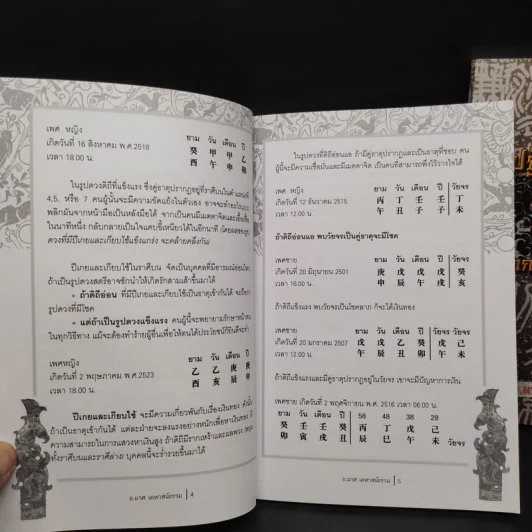 เพศ หญิง
เกิดวันที่ 16 สิงหาคม พ.ศ.2518
เวลา 18.00 น.
ยาม วัน เดือน ปี
癸 甲 甲 乙
酉 午 申 卯
ในรูปดวงที่ดิถีแข็งแรง ซึ่งคู่ธาตุปรากฏอยู่ที่ราศีบนในตำแหน่งที่
4,5, หรือ 7 คนผู้นั้นจะมีความขัดแย้งในตัวเอง อาจจะทำอะไร
พลิกมันจากหน้ามือเป็นหลังมือได้ จากเป็นคนมีเมตตาจิต
ในนาทีหนึ่ง กลับกลายเป็นใจแคบขี้เหนียวได้ในอีกนาที
ดวงที่มีปีเกยและเกียบใช้แข็งแกร่ง จะคล้ายคลึงกัน)
ปีเกยและเกียบใช้ในราศีบน จัดเป็นบุคคลที่มีอารมณ์อ่อนไหว
ถ้าเป็นรูปดวงสตรีอาจชักนำให้เกิดรักสามเส้าขึ้นมาได้
• ถ้าดิถีอ่อน ที่มีปีเกยและเกียบใช้เป็นธาตุเข้ากันได้ จะถือว่า
รูปดวงที่มีโชค
• แต่ถ้าเป็นรูปดวงแข็งแรง คนผู้นี้จะพยายามรักษาหน้าตน
ในทุกวิถีทาง แม้จะต้องทำร้ายผู้อื่นเพื่อให้ตนได้ประโยชน์ก็ยินดีจะทำ
เพศหญิง
เกิดวันที่ 2 พฤษภาคม พ.ศ.2523
เวลา 18.00 น.
ยาม วัน เดือน ปี
乙 乙 庚 庚
酉 亥 辰 申
ปีเกยและเกียบใช้ จะมีความเกี่ยวพันกับเรื่องเงินทอง ดังนั้น
ถ้าเป็นธาตุเข้ากันได้ แต่ละฝ่ายจะลงแรงอย่างหนักเพื่อหาเงินทอง
ความสามารถในการแสวงหาเงินสูง ถ้าดิถีมีรากเหง้าและผลพวง
ทั้งราศีบนและราศีล่าง) บุคคลนี้จะร่ำรวยขึ้นมาได้
อ.มาศ เคหาสน์ธรรม 4
ในรูปดวงที่ดิถีอ่อนแอ ถ้ามีคู่ธาตุปรากฏและเป็นธาตุที่ชอบ คน
ผู้นี้จะมีความเชื่อมั่นและมีเมตตาจิต เป็นคนที่สามารถพึ่งไว้วางใจได้
เพศ หญิง
เกิดวันที่ 12 ธันวาคม 2515
เวลา 12.00 น.
ยาม วัน เดือน ปี วัยจร
丙 丁 壬 壬 丁
午 丑 子 子 未
ถ้าดิถีอ่อนแอ พบวัยจรเป็นคู่ธาตุจะมีโชค
เพศชาย
เกิดวันที่ 20 มิถุนายน 2501
เวลา 16.00 น.
ยาม วัน เดือน ปี วัยจร
庚 戊 戊 戊 癸
申 辰 午 戌 亥
ถ้าดิถีแข็งแรง พบวัยจรเป็นโชคลาภ ก็จะได้เงินทอง
เพศชาย
เกิดวันที่ 20 มกราคม 2507
เวลา 12.00 น.
ยาม วัน เดือน ปี วัยจร
戊 戊 乙 癸 己
午 辰 丑 卯 未
ถ้าดิถีแข็งแรงและมีคู่ธาตุปรากฏอยู่ในวัยจร เขาจะมีปัญหาการเงิน
เพศชาย เกิดวันที่ 2 พฤศจิกายน พ.ศ. 2516 เวลา 06.00 น.
ยาม วัน เดือน ปี 58 48 38 28
癸 壬 壬 癸 丙 丁 戊 己
卯 寅 戌 丑 辰 巳 午 未 วัยจร
อ.มาศ เคหาสน์ธรรม 5